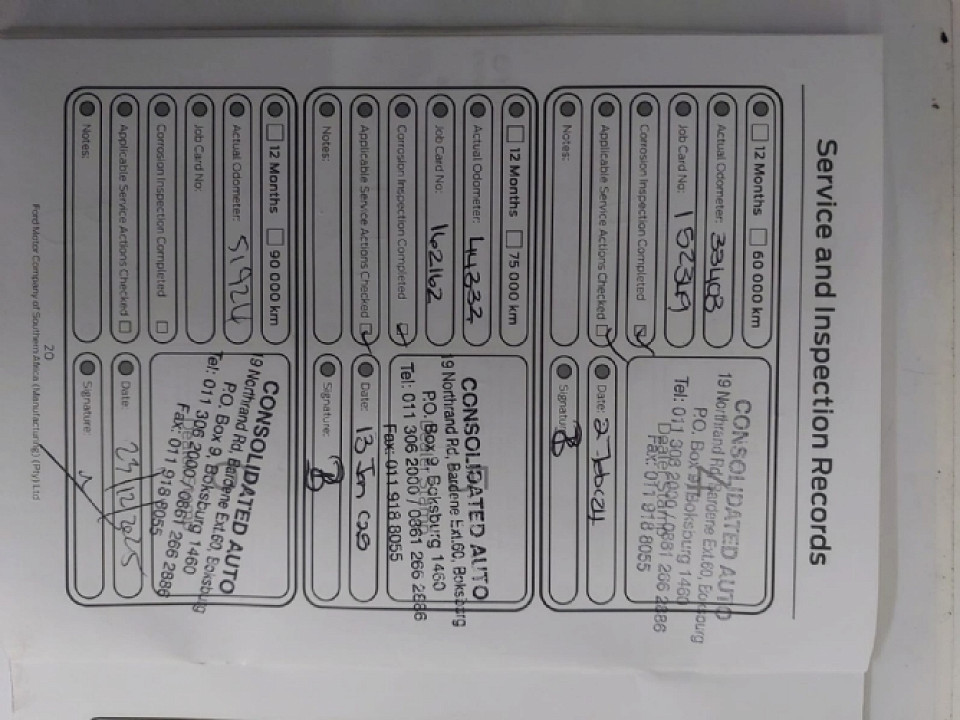 Service and Inspection Records
12 Months 60 000 km
Actual Odometer: 33403
Job Card No:
Corrosion Inspection Completed
Applicable Service Actions Checked
Notes:
CONSOLIDATED AUTO
19 Northrand Rd, Bardene Ext.60, Boksburg
P.O. Box 9, Boksburg 1460
Tel: 011 306 2000 / 0861 266 2886
Fax: 011 918 8055
Date:
Signature:
12 Months 75 000 km
Actual Odometer: 44332
Job Card No: 162162
Corrosion Inspection Completed
Applicable Service Actions Checked
Notes:
CONSOLIDATED AUTO
19 Northrand Rd, Bardene Ext.60, Boksburg
P.O. Box 9, Boksburg 1460
Tel: 011 306 2000 / 0861 266 2886
Fax: 011 918 8055
Date: 13 Jan
Signature:
12 Months 90 000 km
Actual Odometer: 51924
Job Card No:
Corrosion Inspection Completed
Applicable Service Actions Checked
Notes:
CONSOLIDATED AUTO
19 Northrand Rd, Bardene Ext.60, Boksburg
P.O. Box 9, Boksburg 1460
Tel: 011 306 2000 / 0861 266 2886
Fax: 011 918 8055
Date: /12/2025
Signature:
20
Ford Motor Company of Southern Africa (Manufacturing) (Pty) Ltd